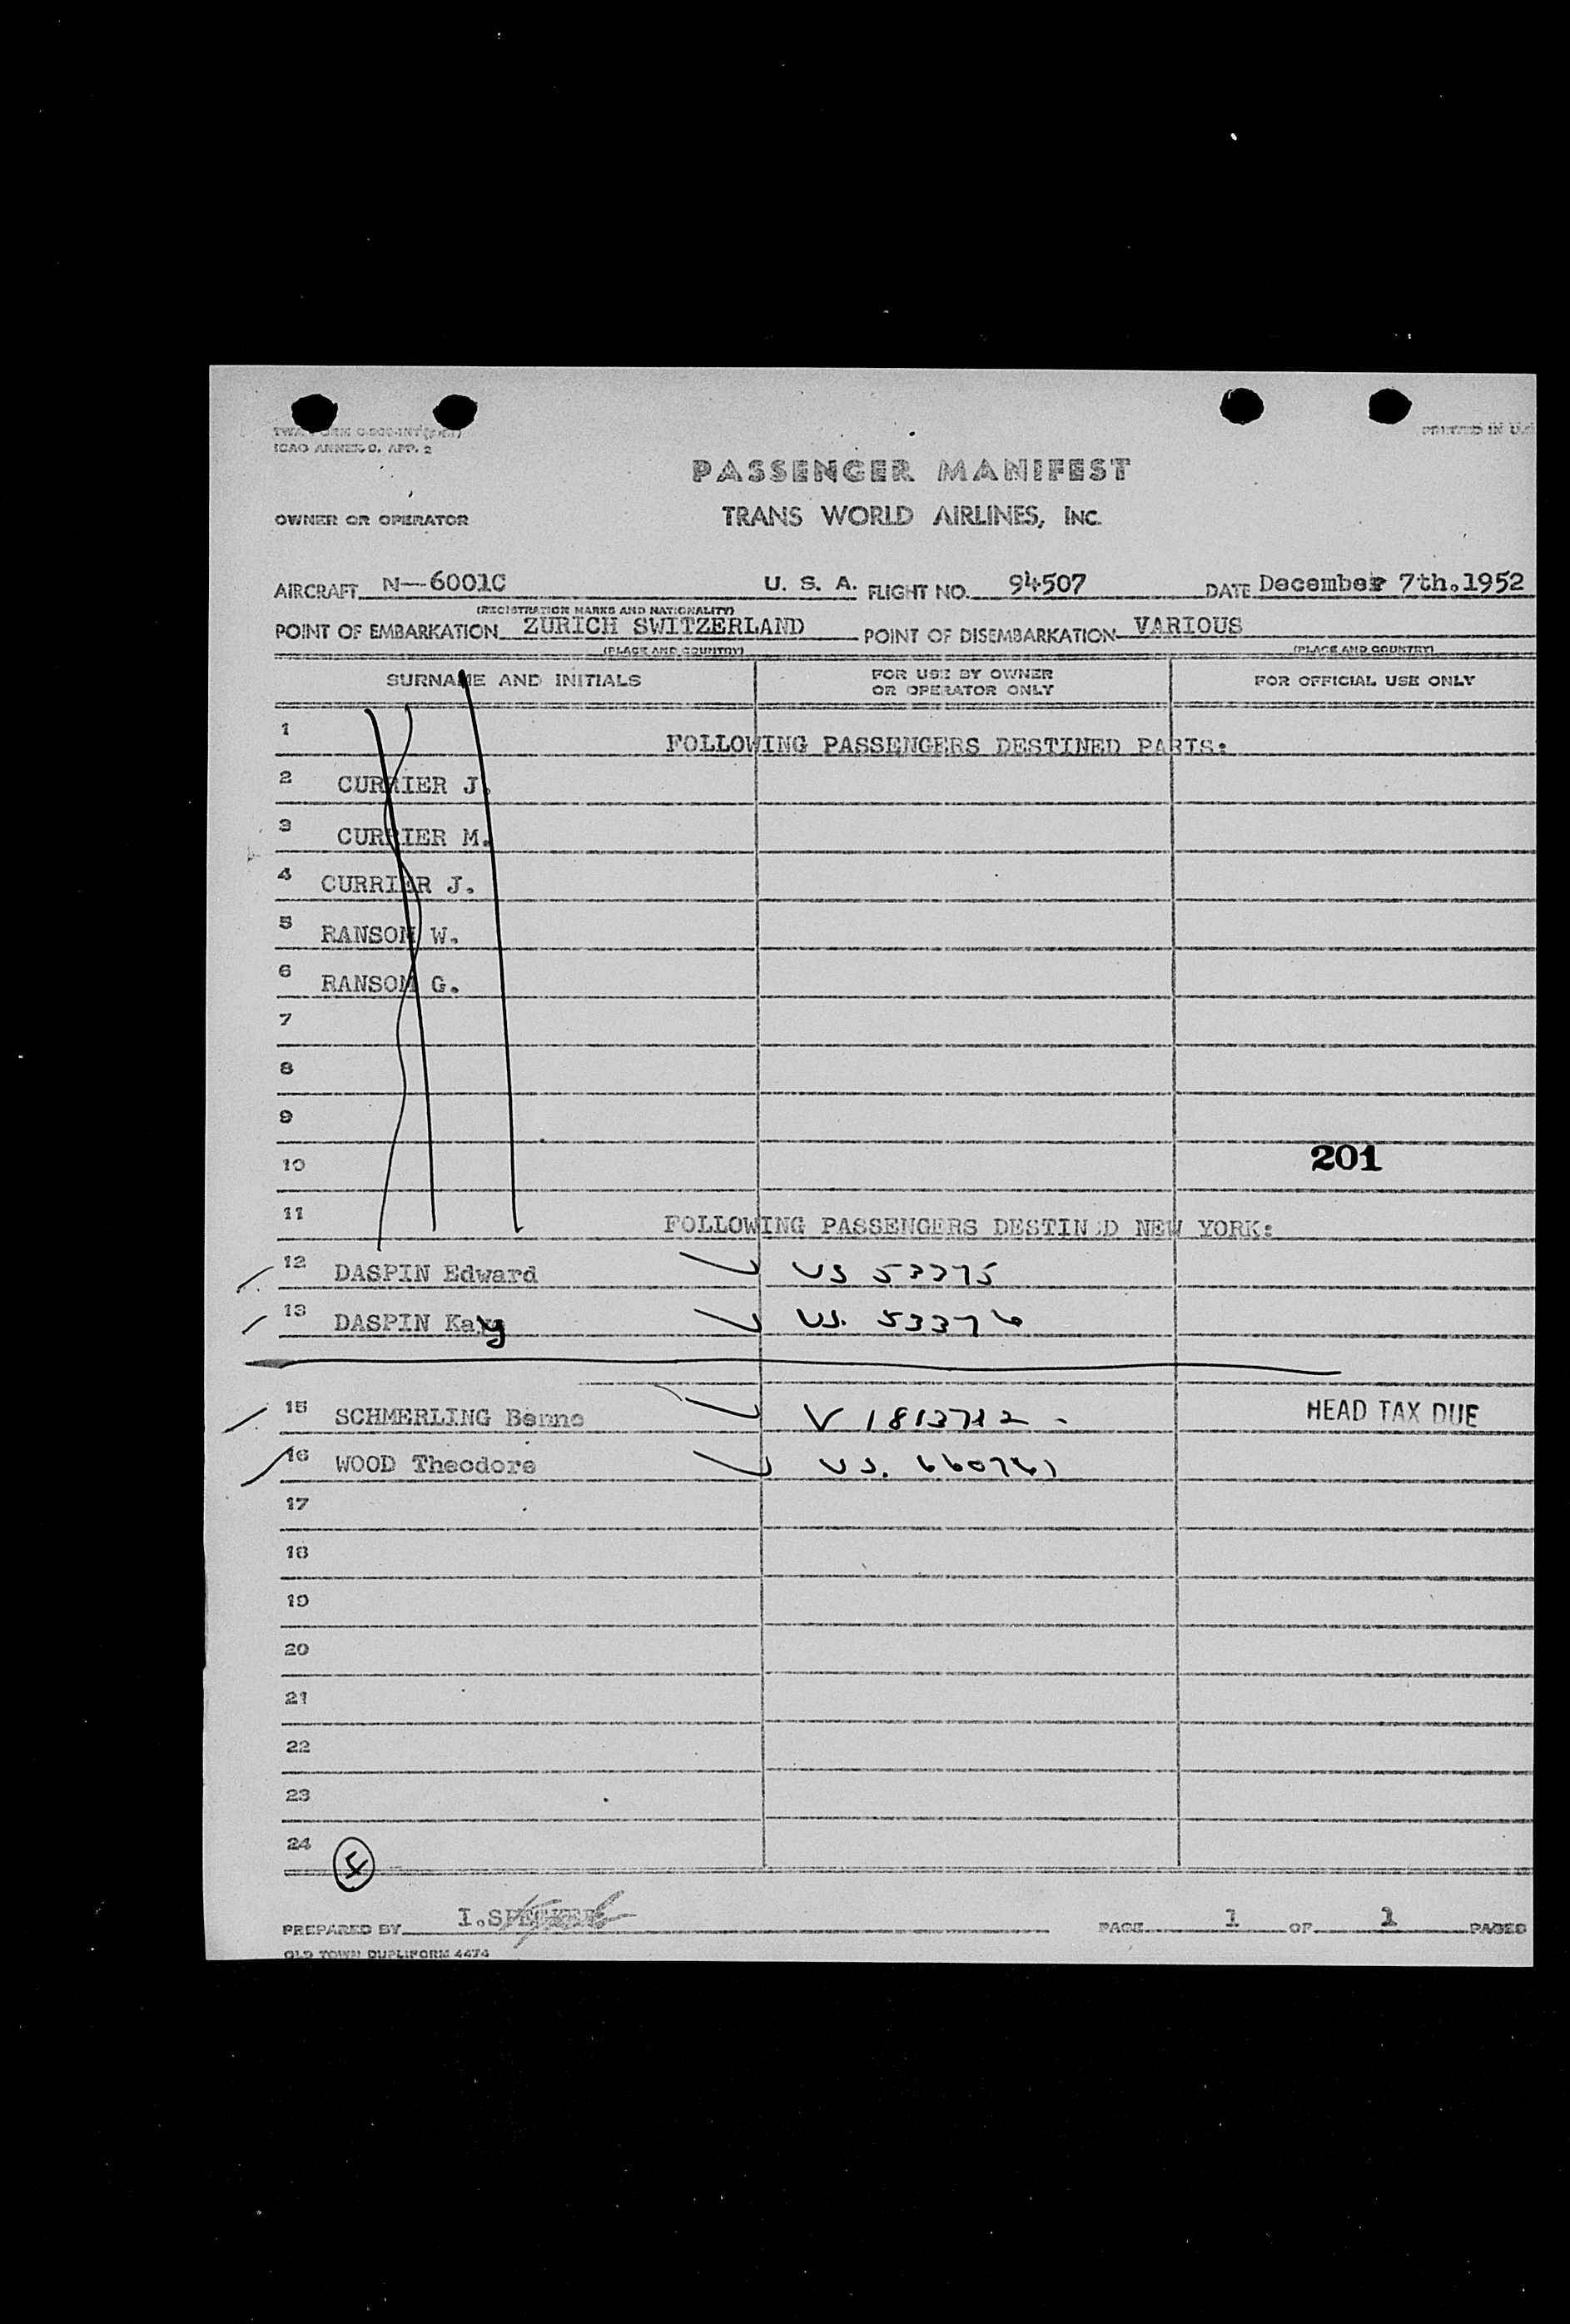 ICAO ANNEX 9. APP. 2
PRINTED IN U.S.
PASSENGER MANIFEST
OWNER OR OPERATOR TRANS WORLD AIRLINES, INC.
AIRCRAFT N-6001C U. S. A. FLIGHT NO. 94507 DATE December 7th.1952
(REGISTRATION MARKS AND NATIONALITY)
POINT OF EMBARKATION ZURICH SWITZERLAND POINT OF DISEMBARKATION VARIOUS
(PLACE AND COUNTRY) (PLACE AND COUNTRY)
SURNAME AND INITIALS FOR USE BY OWNER OR OPERATOR ONLY FOR OFFICIAL USE ONLY
1 FOLLOWING PASSENGERS DESTINED PARIS:
2 CURRIER J.
3 CURRIER M.
4 CURRIER J.
5 RANSOM W.
6 RANSOM G.
7
8
9
10 201
11 FOLLOWING PASSENGERS DESTIN D NEW YORK:
12 DASPIN Edward US 53375
13 DASPIN Kay US. 53376
15 SCHMERLING Benno V 1813712 - HEAD TAX DUE
16 WOOD Theodore US.
17
18
19
20
21
22
23
24
PREPARED BY I.SPECKER PAGE 1 OF 1 PAGES
OLD TOWN DUPLIFORM 4474